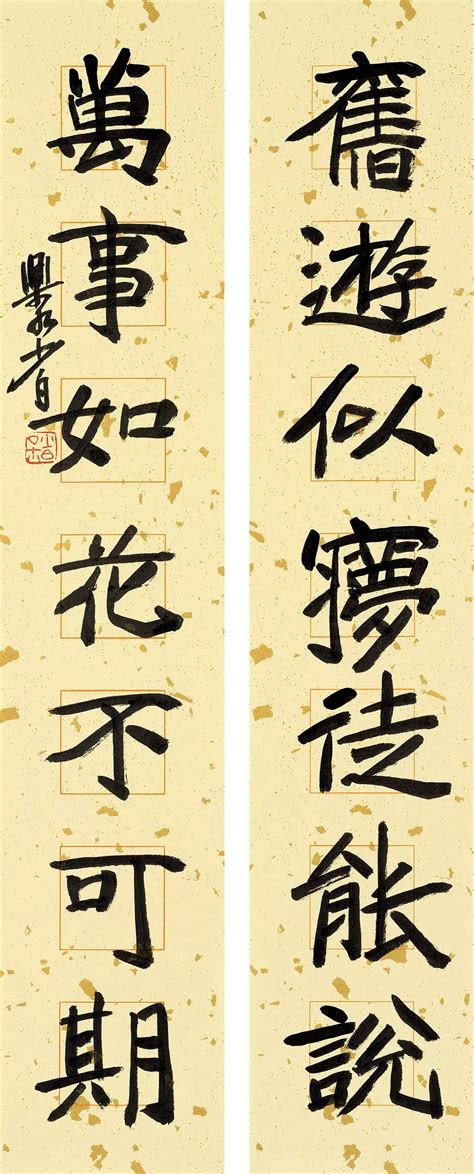 舊遊似夢徒能說
萬事如花不可期